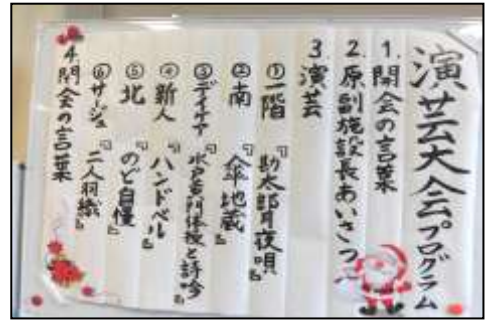 演芸大会プログラム
1. 開会の言葉
2. 原副施設長あいさつ
3 演芸
① 一階 『勘太郎月夜唄』
② 南 『傘地蔵』
③ デイケア 『水戸黄門体操と詩吟』
④ 新人 『ハンドベル』
⑤ 北 『のど自慢』
⑥ サージュ 『二人羽織』
4. 閉会の言葉